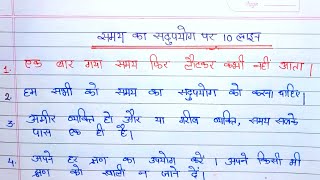 समय का सदुपयोग पर 10 लाइन
1. एक बार गया समय फिर लौटकर कभी नहीं आता |
2. हम सभी को समय का सदुपयोग को करना चाहिए |
3. अमीर व्यक्ति हो और या गरीब व्यक्ति, समय सबके
पास एक ही है |
4. अपने हर क्षण का उपयोग करें | अपने किसी भी
क्षण को खाली न जाने दें |